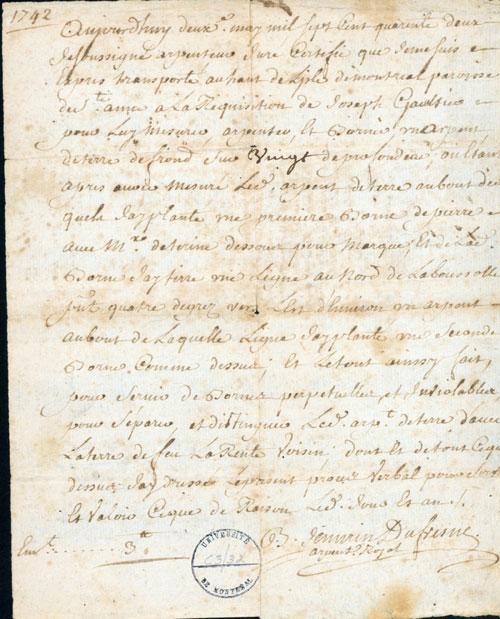 1742
Aujourdhuy deux.e may mil sept cent quarente deux
Jesoussigné arpenteur Juré Certifie que Jemesuis e
Exprés transporté auhaut de Lisle demontreal paroisse
de s.te anne a La Requisition de Joseph Gaultier e
pour Luy Mesurer, arpenter, Et Borner un arpent
deterre defrond sur Vingt deprofondeur, ou Etant
aprés avoir Mesuré Led. arpent deterre aubout du
quel Jay planté une premiere Borne depierre e
avec M.re deterine dessous pour Marque, Et de Lad.
Borne Jay tiré une Ligne au Nord de Laboussolle
quatre degrez vers L'Est d'Environ un arpent
aubout de Laquelle Ligne Jay planté une Seconde
Borne Comme dessus; Et Letout ainssy fait,
pour Servir de Bornes perpetuelles, et Inviolables
pour Séparer, et distinguer Led. arp.t deterre d'avec
Laterre de feu La Rente Voisin; dont et detout Ceque
dessus Jay dressé Lepresent procés Verbal pour
Et Valoir Ceque de Raison Led. Jour Et an /.
3.tt
Janvrin Dufresne
arpent. Royal
UNIVERSITÉ
DE MONTRÉAL